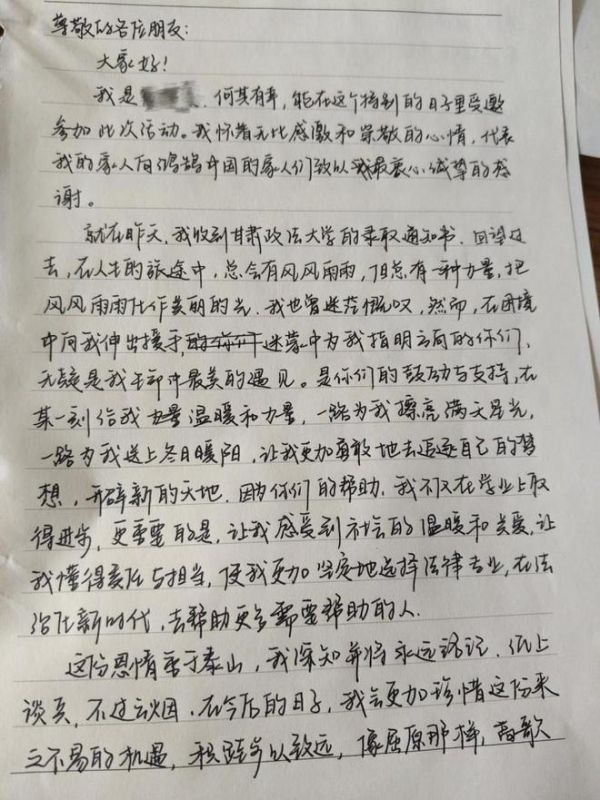 尊敬的各位朋友:
大家好!
我是 何其有幸,能在这个特别的日子里受邀
参加此次活动。我怀着无比感激和崇敬的心情,代表
我的家人向鸿鹄中国的家人们致以我最衷心诚挚的感
谢。
就在昨天,我收到甘肃政法大学的录取通知书.回望过
去,在人生的旅途中,总会有风风雨雨,但总有一种力量,把
风风雨雨化作美丽的光.我也曾迷茫慨叹,然而,在困境
中向我伸出援手,迷蒙中为我指明方向的你们,
无疑是我生命中最美的遇见。是你们的鼓励与支持,在
某一刻给我力量温暖和力量,一路为我擦亮满天星光,
一路为我送上冬日暖阳,让我更加勇敢地去追逐自己的梦
想,开辟新的天地.因为你们的帮助.我不仅在学业上取
得进步,更重要的是,让我感受到社会的温暖和关爱,让
我懂得责任与担当,使我更加坚定地选择法律专业,在法
治化新时代,去帮助更多需要帮助的人.
这份恩情重于泰山,我深知并将永远铭记.纸上
谈兵,不过云烟.在今后的日子,我会更加珍惜这份来
之不易的机遇,积跬步以致远,像屈原那样,高歌